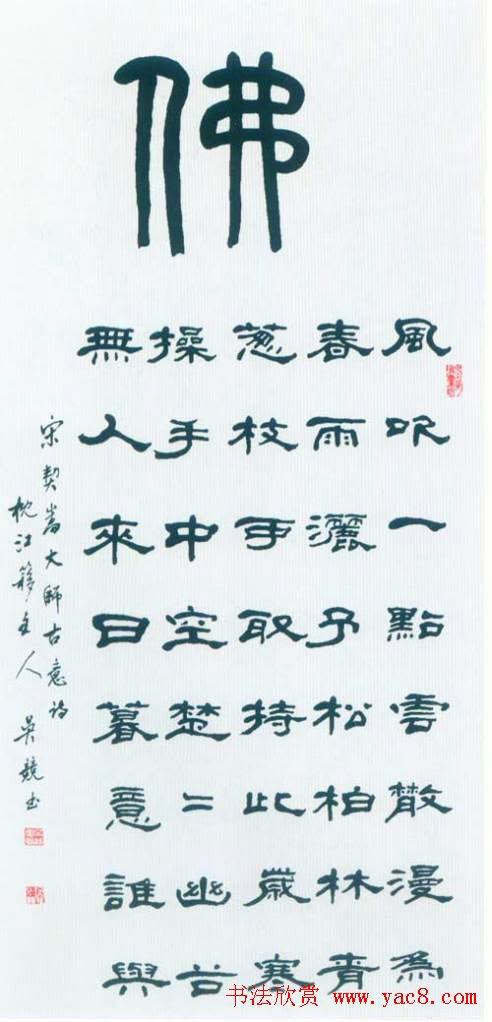 佛
風吹一點雲散漫為
春雨灑予松柏林青
葱枝手取持此歲寒
操手中空楚々幽谷
無人來日暮意誰與
宋契嵩大師古意詩
枕江簃主人 吳競書
书法欣赏 www.yac8.com